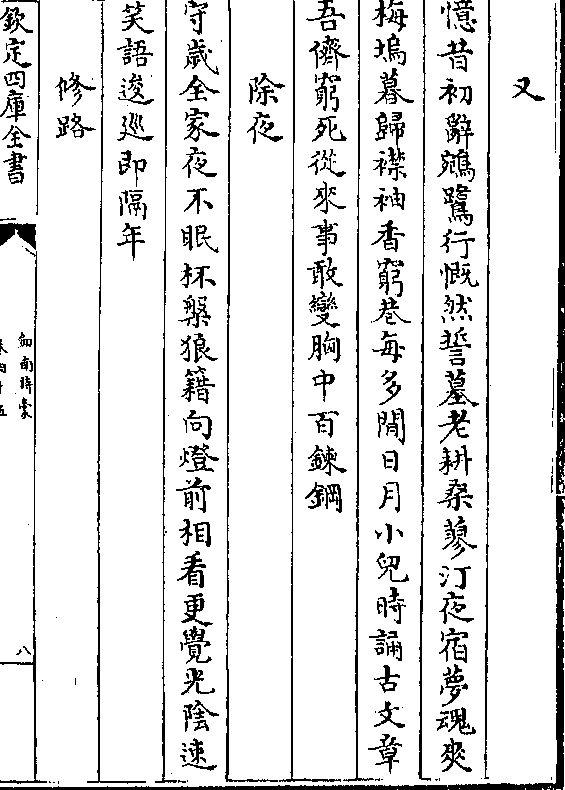 又
憶昔初辭鵷鷺行慨然誓墓老耕桑蓼汀夜宿夢魂爽
梅塢暮歸襟袖香窮巷每多閒日月小兒時誦古文章
吾儕窮死從來事敢變胸中百鍊鋼
除夜
守歲全家夜不眠杯盤狼籍向燈前相看更覺光陰速
笑語逡巡即隔年
修路
欽定四庫全書
劍南詩稾
卷四十五
八